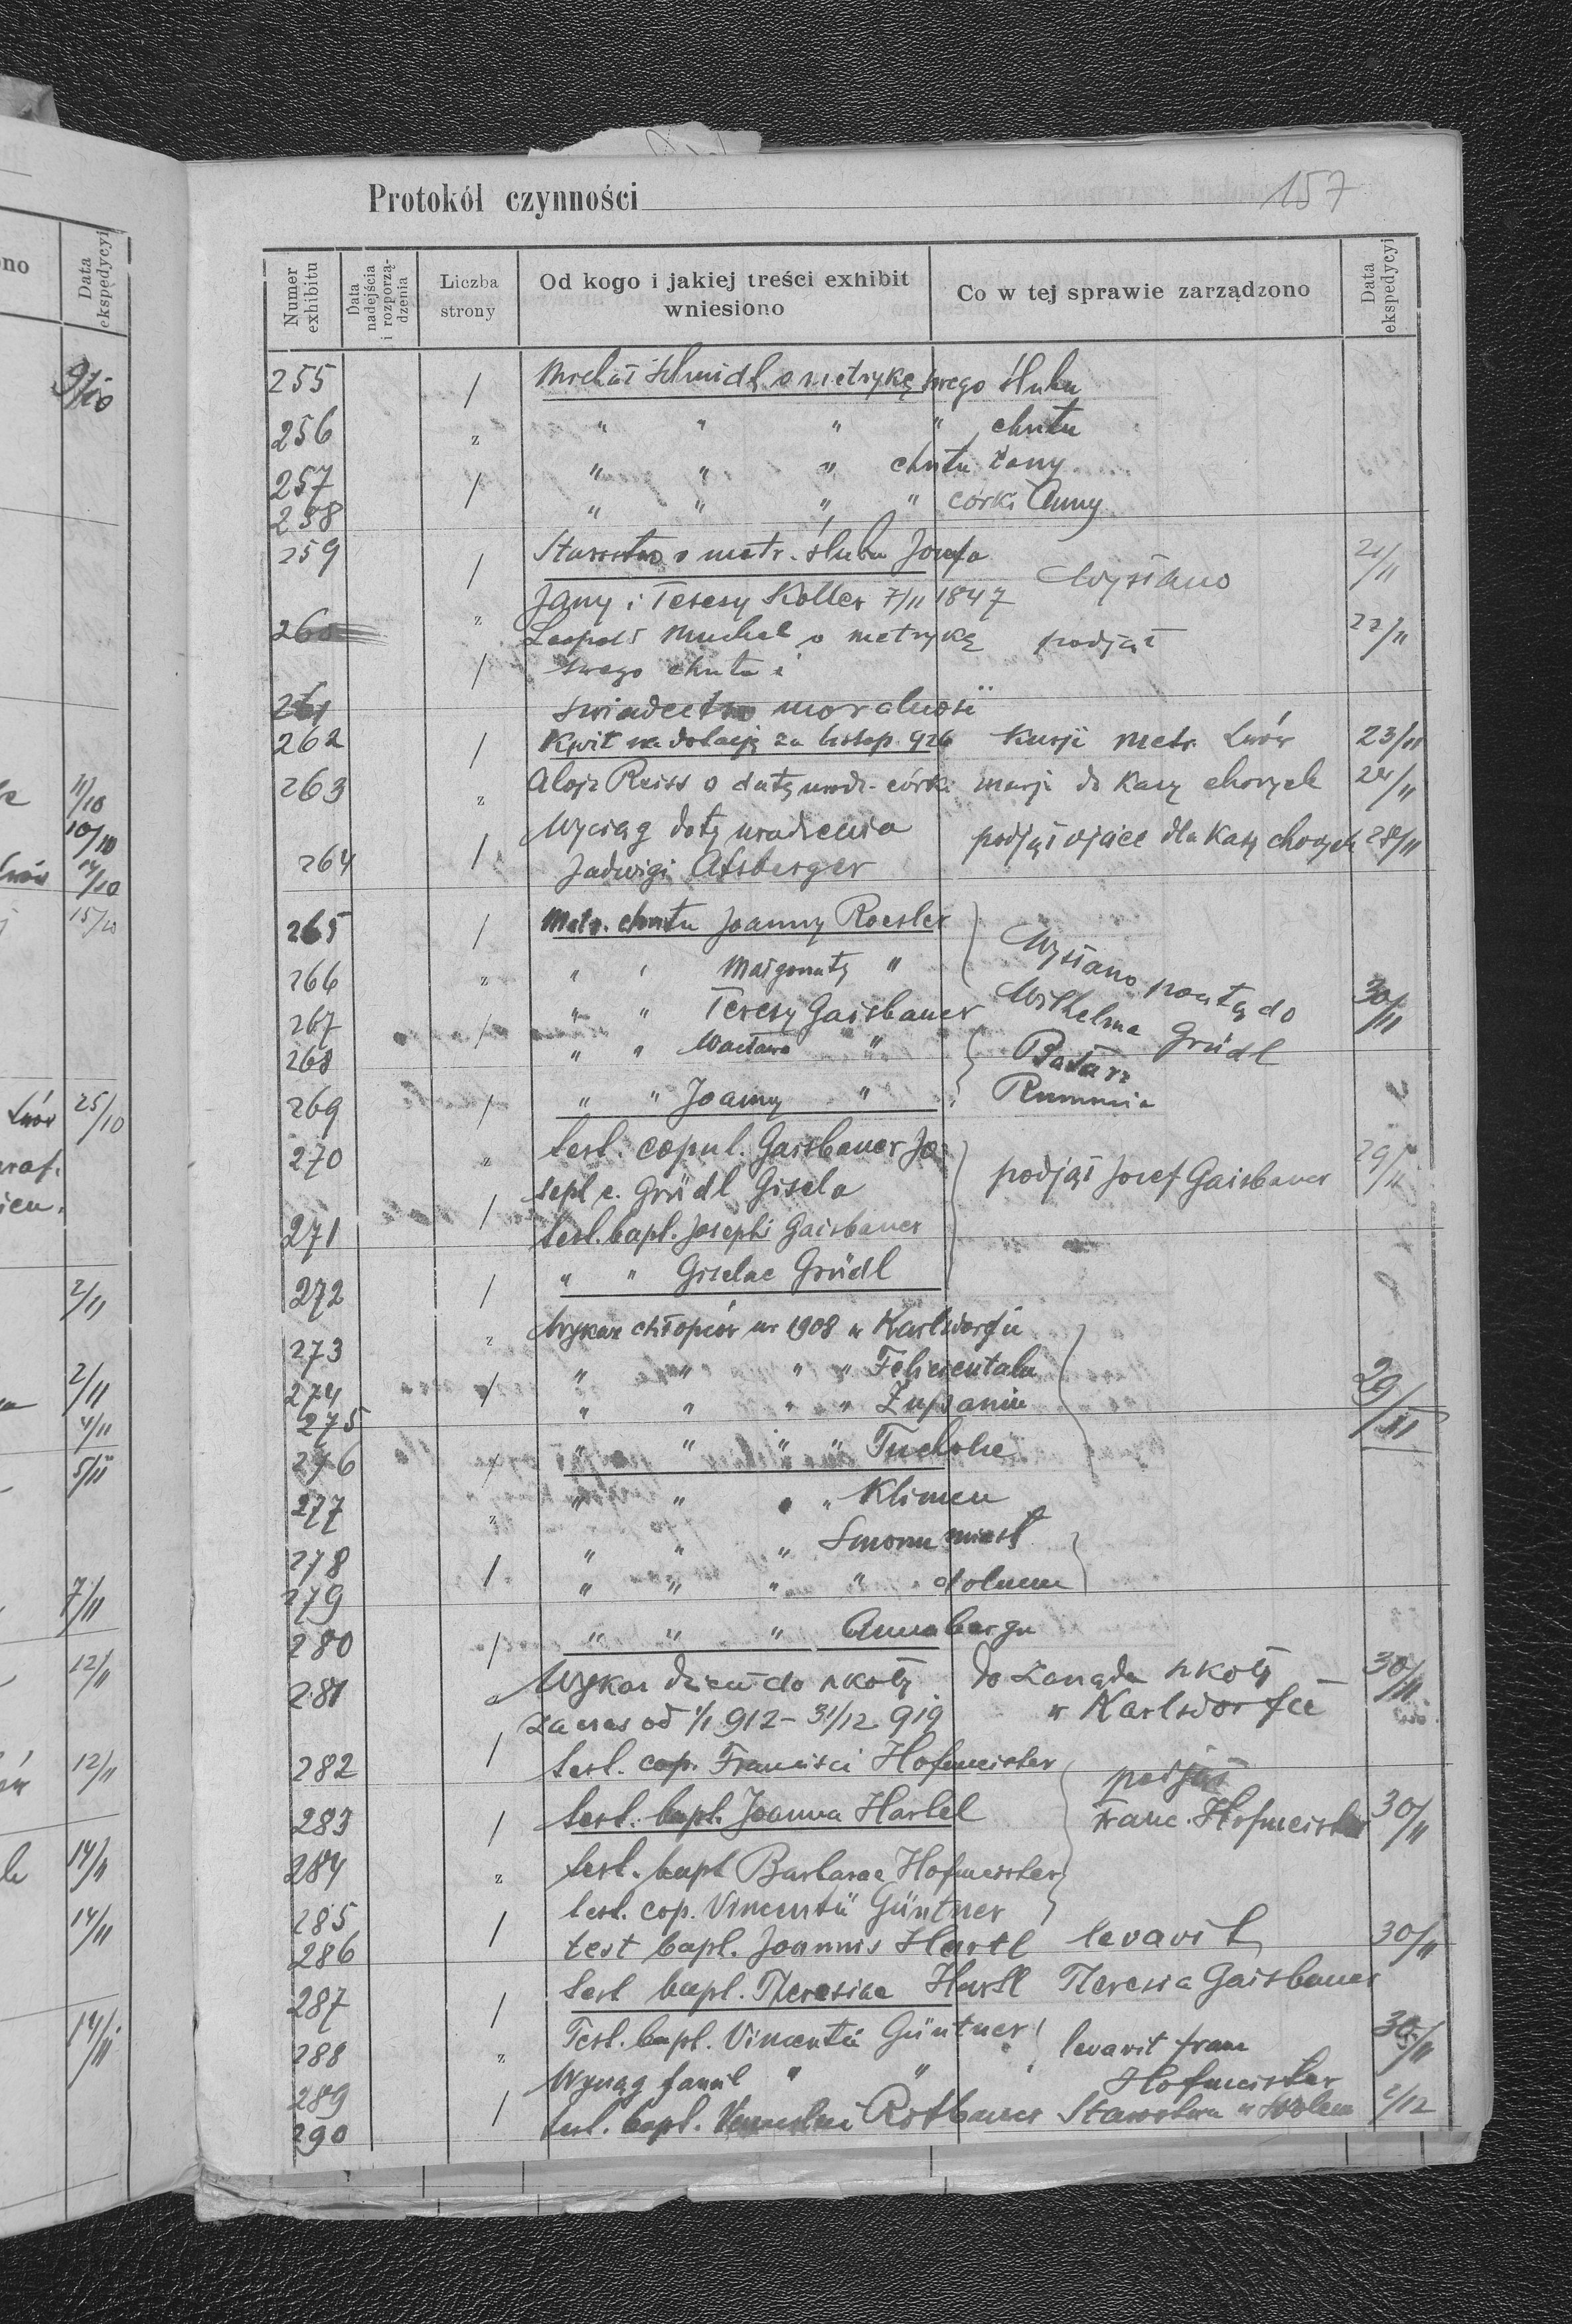 Protokół czynności 157
Numer exhibitu
Data nadejścia i rozporzą-dzenia
Liczba strony
Od kogo i jakiej treści exhibit wniesiono
Co w tej sprawie zarządzono
Data ekspedycyi
255 / Michał Schmidt o metrykę swego ślubu
256 " " " " " chrztu
257 / " " " chrztu żony
258 " " " " córki Anny
259 / Starostwo o metr. ślubu Josefa
Jany i Teresy Koller 7/11 1847 Wysłano 21/11
260 " Leopold Muchel o metrykę podjął 22/11
/ swego chrztu i
261 świadectwo moralności
262 / Kwit na dotację za listop. 926 Kurji Metr. Lwów 23/11
263 " Alojz Reiss o datę urodz. córki Marji do Kasy chorych 24/11
Wyciąg daty urodzenia podjął ojciec dla Kasy chorych 28/11
264 / Jadwigi Atsberger
265 / Metr. chrztu Joanny Roesler
266 " " " Małgorzaty " Wysłano pocztą do
267 / " " Teresy Gaisbauer Wilhelma Grüdl 30/11
268 " " Wacława "
269 / " " Joanny " Rumunia
270 " test. copul. Gaisbauer Jo-
seph c. Grüdl Gisela podjął Josef Gaisbauer 29/11
271 / test. bapt. Josephi Gaisbauer
272 / " " Giselae Grüdl
273 " Wykaz chłopców ur 1908 w Karlsdorfie
274 / " " " " Felicientalu
275 " " " " Żupaniu 29/11
276 / " " " " Tucholce
277 " " " " " Klimcu
278 / " " " Smorzu miast
279 " " " " dolnem
280 / " " " Annabergu
281 " Wykaz dzieci do szkoły do Zarządu szkoły 30/11
za czas od 1/1 912 - 31/12 919 w Karlsdorfie
282 / test. cop. Francisci Hofmeister podjął
283 / test. bapt. Joanna Hartel Franc. Hofmeister 30/11
284 " test. bapt Barbarae Hofmeister
285 / test. cop. Vincentii Güntner
286 test bapt. Joannis Hartl levavit 30/11
287 / test bapt. Theresiae Hartl Theresia Gaisbauer
288 " Test. bapt. Vincentii Güntner levavit Franc 30/11
289 Wyciąg famil " " Hofmeister
290 / test. bapt. Rotbauer Starostwu w Skolem 2/12
9/10
11/10
10/10
14/10
15/10
Lwów 25/10
2/11
2/11
4/11
5/11
7/11
12/11
12/11
14/11
14/11
14/11